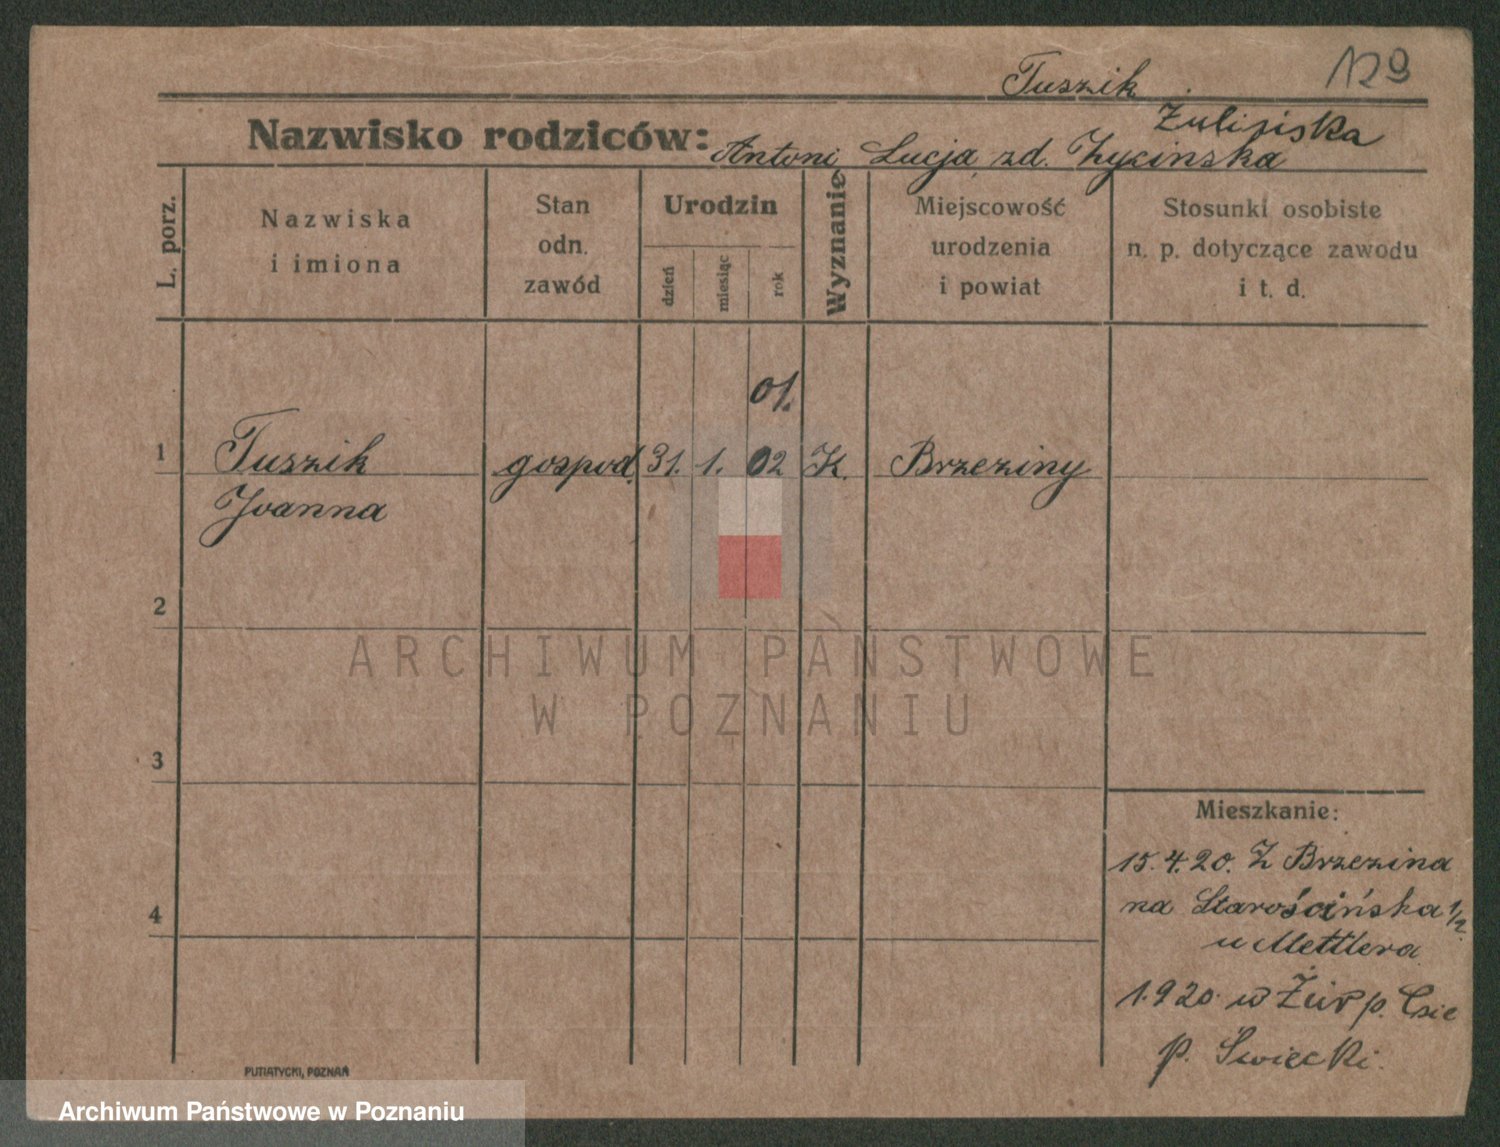 129
Tuszik
Żulińska
Nazwisko rodziców: Antoni Łucja zd. Życinska
L. porz.
Nazwiska
i imiona
Stan
odn.
zawód
Urodzin
dzień
miesiąc
rok
Wyznanie
Miejscowość
urodzenia
i powiat
Stosunki osobiste
n. p. dotyczące zawodu
i t. d.
01.
1 Tuszik gospod. 31. 1. 02 K. Brzeziny
Joanna
2
3
4
ARCHIWUM PAŃSTWOWE
W POZNANIU
Mieszkanie:
15.4.20. Z Brzezina
na Starościńska 1/2
u Mettlera
1.9 20. w Żur p.
p. Świecki.
PUTIATYCKI, POZNAŃ
Archiwum Państwowe w Poznaniu